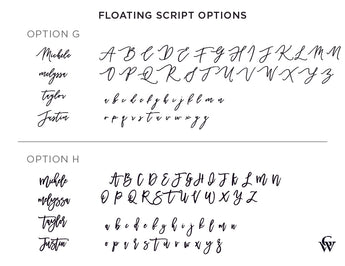 FLOATING SCRIPT OPTIONS
OPTION G
Michele A B C D E F G H I J K L M N
melyssa O P Q R S T U V W X Y Z
taylor a b c d e f g h i j k l m n
Justin o p q r s t u v w x y z
OPTION H
Michele A B C D E F G H I J K L M N
melyssa O P Q R S T U V W X Y Z
Taylor a b c d e f g h i j k l m n
Justin o p q r s t u v w x y z